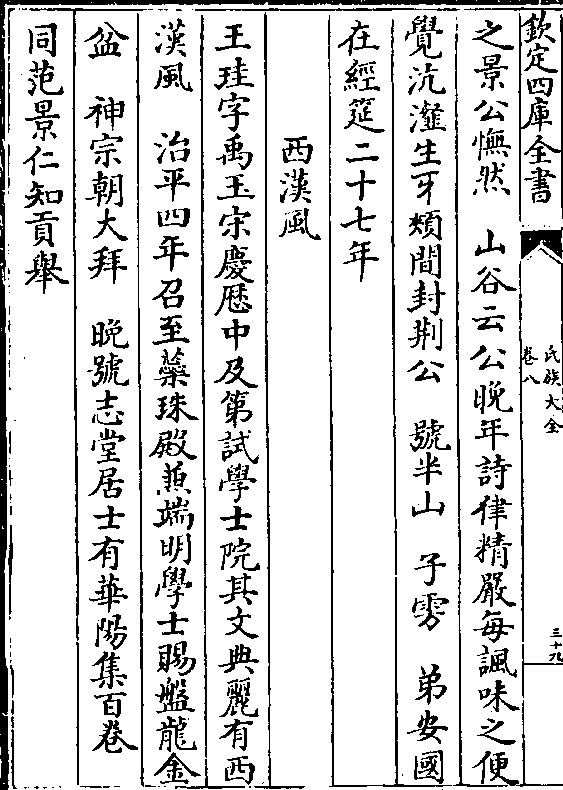 欽定四庫全書
氏族大全
卷八
三十九
之景公憮然　山谷云公晚年詩律精嚴每諷味之便
覺沆瀣生牙頰間封荆公　號半山　子雱　弟安國
在經筵二十七年
西漢風
王珪字禹玉宋慶厯中及第試學士院其文典麗有西
漢風　治平四年召至蘂珠殿兼端明學士賜盤龍金
盆　神宗朝大拜　晚號志堂居士有華陽集百卷
同范景仁知貢舉